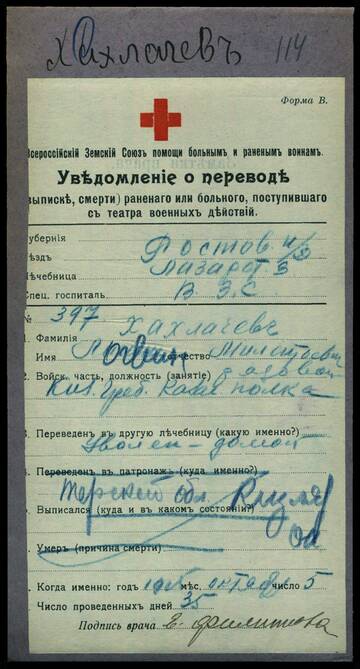 Хахлачевъ 114
Форма В.
Всероссійскій Земскій Союзъ помощи больнымъ и раненымъ воинамъ.
Увѣдомленіе о переводѣ
выпискѣ, смерти) раненаго или больного, поступившаго
съ театра военныхъ дѣйствій.
губернія Ростов н/Д
ѣздъ Лазарет 3
Лѣчебница В. З. С
Спец. госпиталь
№ 397
1. Фамилія Хахлачевъ
Имя Отчество
2. Войск. часть, должность (занятіе)
Киз. Греб. Казач полка
3. Переведенъ въ другую лѣчебницу (какую именно?)
Уволен - домой
4. Переведенъ въ патронажъ (куда именно?)
Терской обл Кизляр
Выписался (куда и въ какомъ состояніи?)
Умеръ (причина смерти)
Когда именно: годъ мѣс. октября число 5
Число проведенныхъ дней 35
Подпись врача